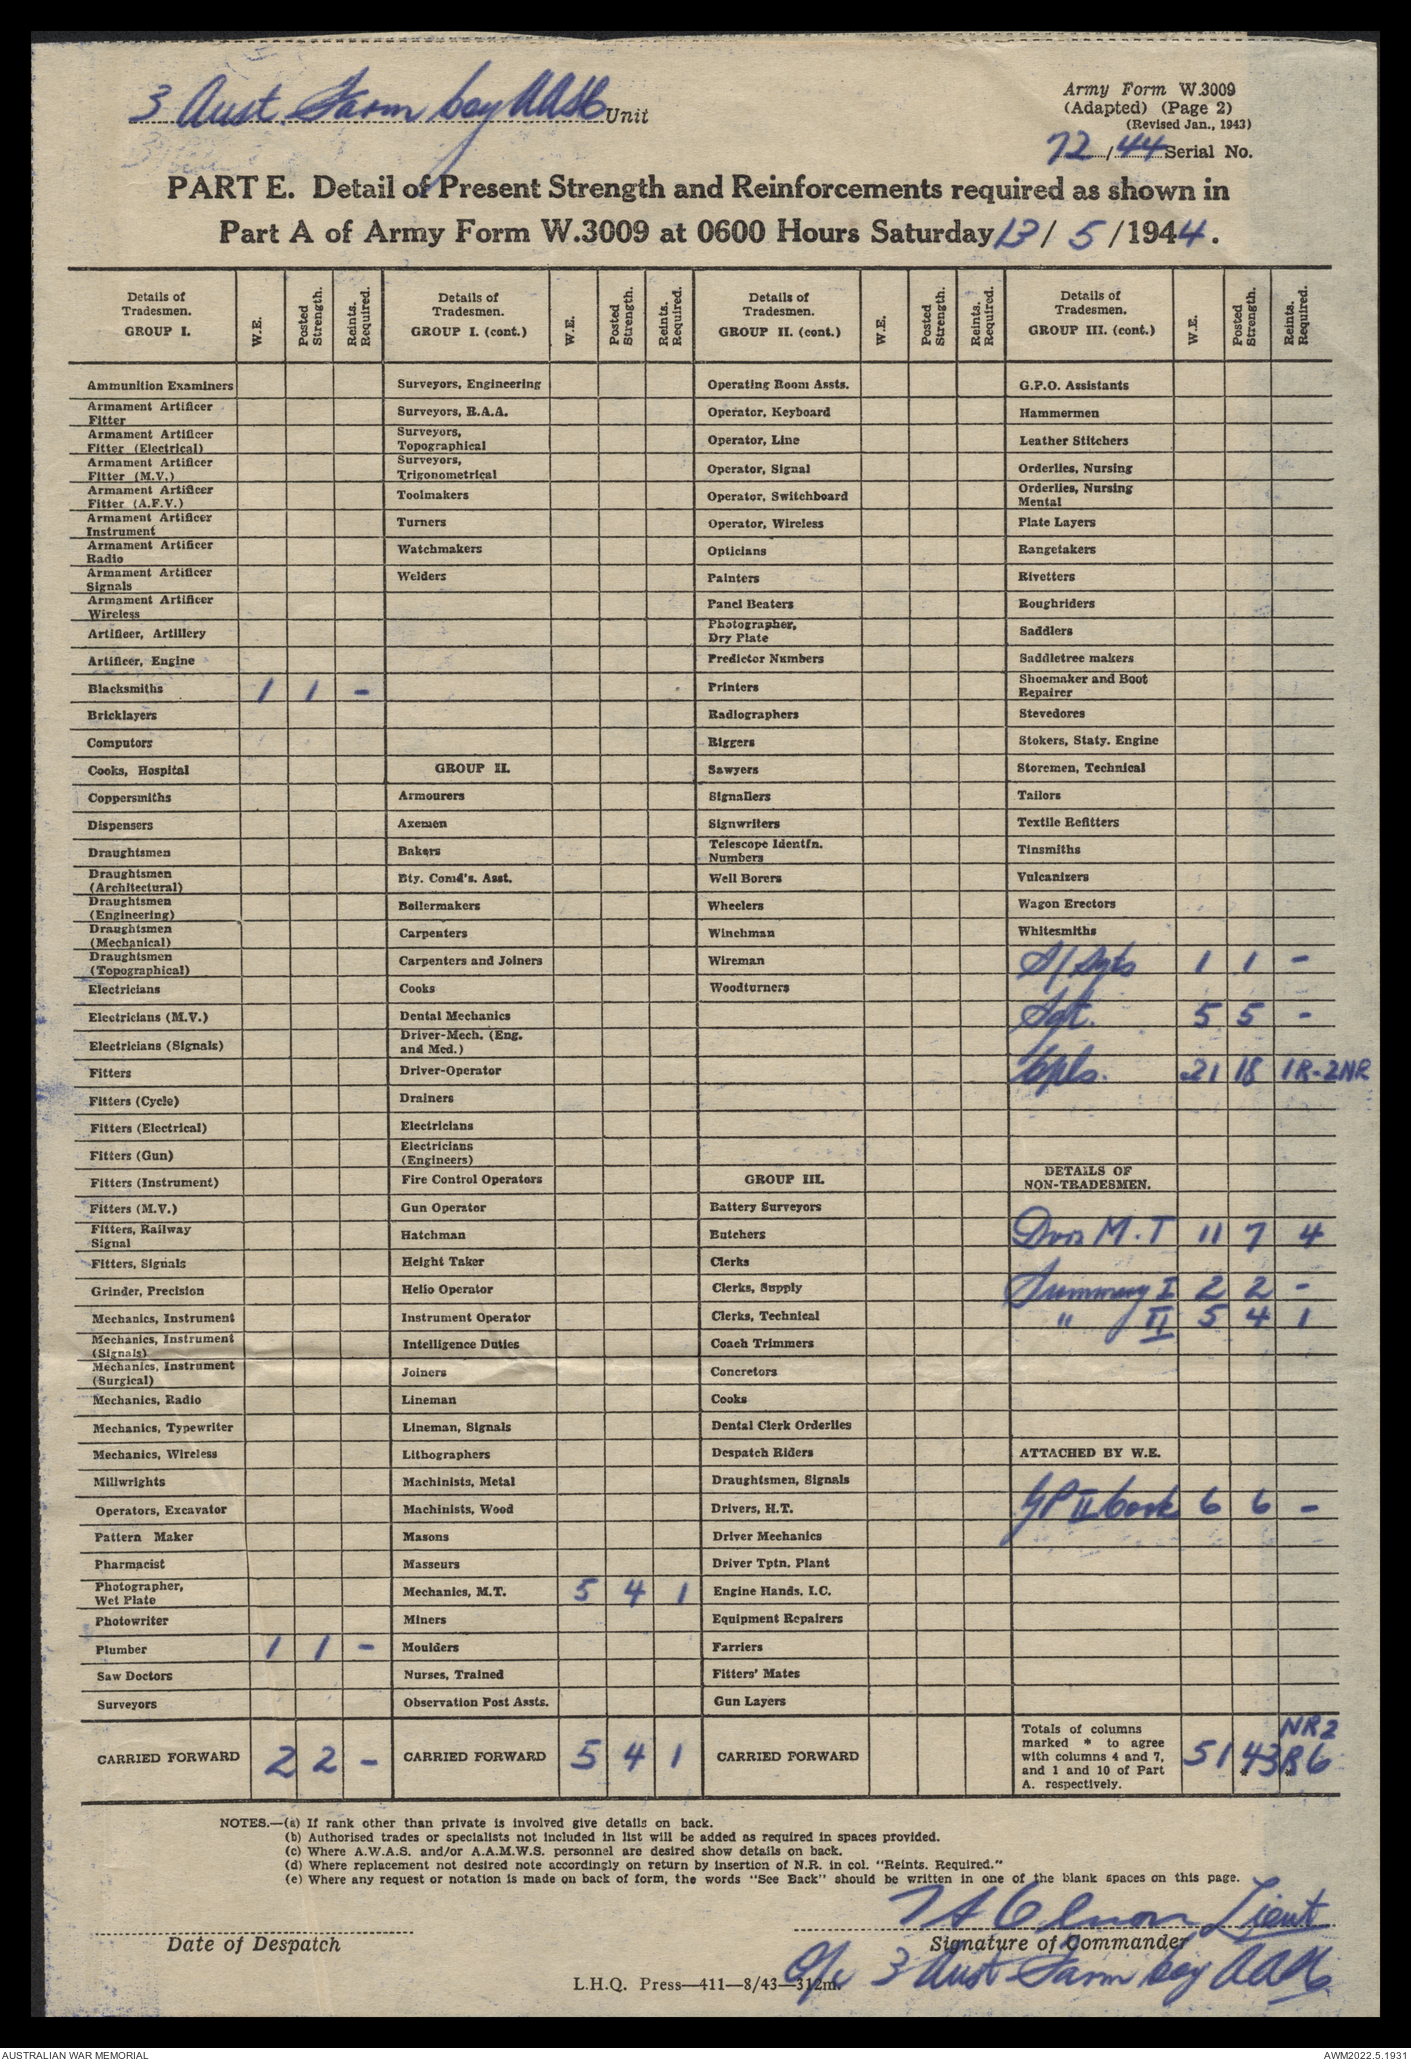 3 Aust. Farm Coy AASC Unit
Army Form W.3009
(Adapted) (Page 2)
(Revised Jan., 1943)
72/44 Serial No.
PART E. Detail of Present Strength and Reinforcements required as shown in
Part A of Army Form W.3009 at 0600 Hours Saturday 13/5/1944.
Details of Tradesmen. GROUP I. | W.E. | Posted Strength. | Reints. Required.
Ammunition Examiners
Armament Artificer Fitter
Armament Artificer Fitter (Electrical)
Armament Artificer Fitter (M.V.)
Armament Artificer Fitter (A.F.V.)
Armament Artificer Instrument
Armament Artificer Radio
Armament Artificer Signals
Armament Artificer Wireless
Artificer, Artillery
Artificer, Engine
Blacksmiths 1 1 -
Bricklayers
Computors
Cooks, Hospital
Coppersmiths
Dispensers
Draughtsmen
Draughtsmen (Architectural)
Draughtsmen (Engineering)
Draughtsmen (Mechanical)
Draughtsmen (Topographical)
Electricians
Electricians (M.V.)
Electricians (Signals)
Fitters
Fitters (Cycle)
Fitters (Electrical)
Fitters (Gun)
Fitters (Instrument)
Fitters (M.V.)
Fitters, Railway Signal
Fitters, Signals
Grinder, Precision
Mechanics, Instrument
Mechanics, Instrument (Signals)
Mechanics, Instrument (Surgical)
Mechanics, Radio
Mechanics, Typewriter
Mechanics, Wireless
Millwrights
Operators, Excavator
Pattern Maker
Pharmacist
Photographer, Wet Plate
Photowriter
Plumber 1 1 -
Saw Doctors
Surveyors
CARRIED FORWARD 2 2 -
Details of Tradesmen. GROUP I. (cont.) | W.E. | Posted Strength. | Reints. Required.
Surveyors, Engineering
Surveyors, R.A.A.
Surveyors, Topographical
Surveyors, Trigonometrical
Toolmakers
Turners
Watchmakers
Welders
GROUP II.
Armourers
Axemen
Bakers
Bty. Comd's. Asst.
Boilermakers
Carpenters
Carpenters and Joiners
Cooks
Dental Mechanics
Driver-Mech. (Eng. and Med.)
Driver-Operator
Drainers
Electricians
Electricians (Engineers)
Fire Control Operators
Gun Operator
Hatchman
Height Taker
Helio Operator
Instrument Operator
Intelligence Duties
Joiners
Lineman
Lineman, Signals
Lithographers
Machinists, Metal
Machinists, Wood
Masons
Masseurs
Mechanics, M.T. 5 4 1
Miners
Moulders
Nurses, Trained
Observation Post Assts.
CARRIED FORWARD 5 4 1
Details of Tradesmen. GROUP II. (cont) | W.E. | Posted Strength. | Reints. Required.
Operating Room Assts.
Operator, Keyboard
Operator, Line
Operator, Signal
Operator, Switchboard
Operator, Wireless
Opticians
Painters
Panel Beaters
Photographer, Dry Plate
Predictor Numbers
Printers
Radiographers
Riggers
Sawyers
Signallers
Signwriters
Telescope Identfn. Numbers
Well Borers
Wheelers
Winchman
Wireman
Woodturners
GROUP III.
Battery Surveyors
Butchers
Clerks
Clerks, Supply
Clerks, Technical
Coach Trimmers
Concretors
Cooks
Dental Clerk Orderlies
Despatch Riders
Draughtsmen, Signals
Drivers, H.T.
Driver Mechanics
Driver Tptn. Plant
Engine Hands, I.C.
Equipment Repairers
Farriers
Fitters' Mates
Gun Layers
CARRIED FORWARD
Details of Tradesmen. GROUP III. (cont.) | W.E. | Posted Strength. | Reints. Required.
G.P.O. Assistants
Hammermen
Leather Stitchers
Orderlies, Nursing
Orderlies, Nursing Mental
Plate Layers
Rangetakers
Rivetters
Roughriders
Saddlers
Saddletree makers
Shoemaker and Boot Repairer
Stevedores
Stokers, Staty. Engine
Storemen, Technical
Tailors
Textile Refitters
Tinsmiths
Vulcanizers
Wagon Erectors
Whitesmiths
S/Sgts 1 1 -
Sgt. 5 5 -
Cpls. 21 18 1R-2NR
DETAILS OF NON-TRADESMEN.
Dvrs M.T 11 7 4
Summary I 2 2 -
" II 5 4 1
ATTACHED BY W.E.
GP II Cook 6 6 -
Totals of columns marked * to agree with columns 4 and 7, and 1 and 10 of Part A. respectively. 51 43* NR2 R6*
NOTES.—(a) If rank other than private is involved give details on back.
(b) Authorised trades or specialists not included in list will be added as required in spaces provided.
(c) Where A.W.A.S. and/or A.A.M.W.S. personnel are desired show details on back.
(d) Where replacement not desired note accordingly on return by insertion of N.R. in col. "Reints. Required."
(e) Where any request or notation is made on back of form, the words "See Back" should be written in one of the blank spaces on this page.
Lieut
Date of Despatch
Signature of Commander
O/c 3 Aust Farm Coy AASC
L.H.Q. Press—411—8/43—312m.
AUSTRALIAN WAR MEMORIAL
AWM2022.5.1931